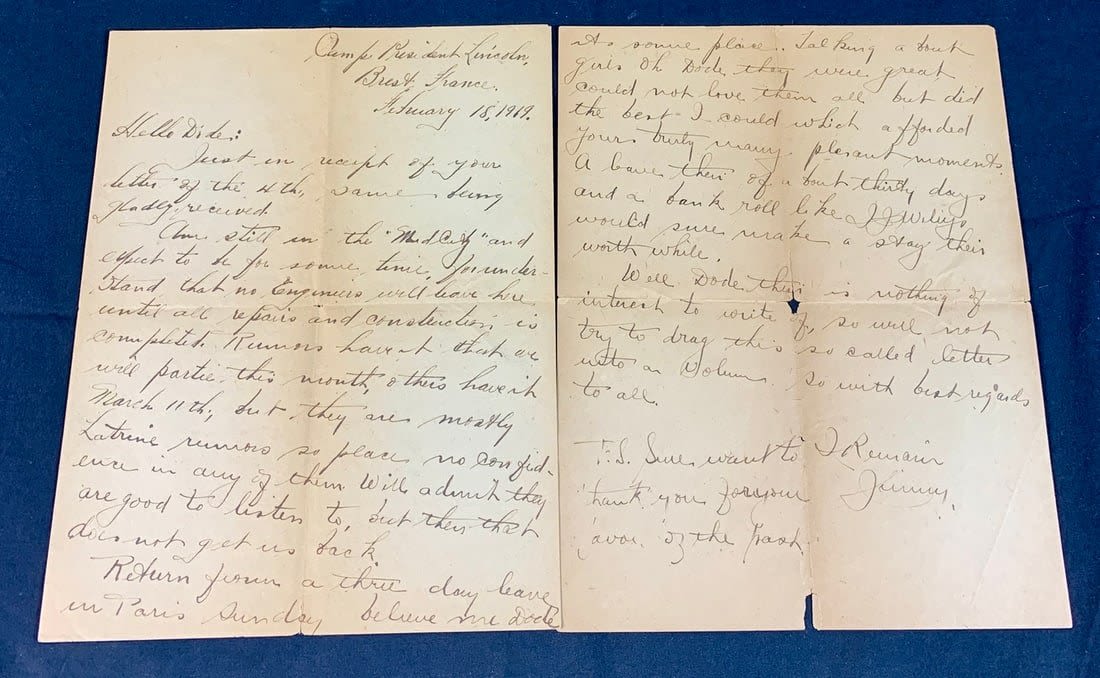 Camp President Lincoln,
Brest, France.
February 18, 1919.
Hello Dode:
Just in receipt of your
letter of the 4th, same being
gladly received.
Am still in the "Mud City" and
expect to be for some time, for under-
stand that no Engineers will leave here
until all repairs and construction is
completed. Rumors have it that we
will partie this month, others have it
March 11th, but they are mostly
Latrine rumors so place no confid-
ence in any of them. Will admit they
are good to listen to, but then that
does not get us back
Return from a three day leave
in Paris Sunday believe me Dode
its some place. Talking about
girls Oh Dode they were great
could not love them all but did
the best I could which afforded
Yours truly many plesant moments.
A leave their of about thirty days
and a bank roll like J J
would sure make a stay their
worth while.
Well Dode their is nothing of
interest to write of, so will not
try to drag this so called letter
into a Volum so with best regards
to all.
I Remain
Jimmy
P.S. Sure want to
thank you for your
favor of the